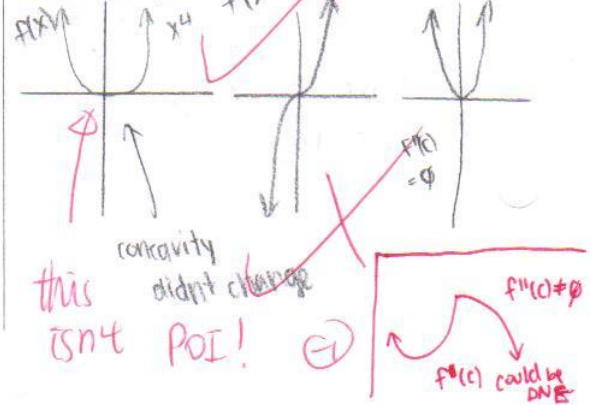 f(x)
x⁴
f''(c)
= 0
concavity
didn't change
this
isn't POI!
-1
f''(c) ≠ 0
f''(c) could be
DNE